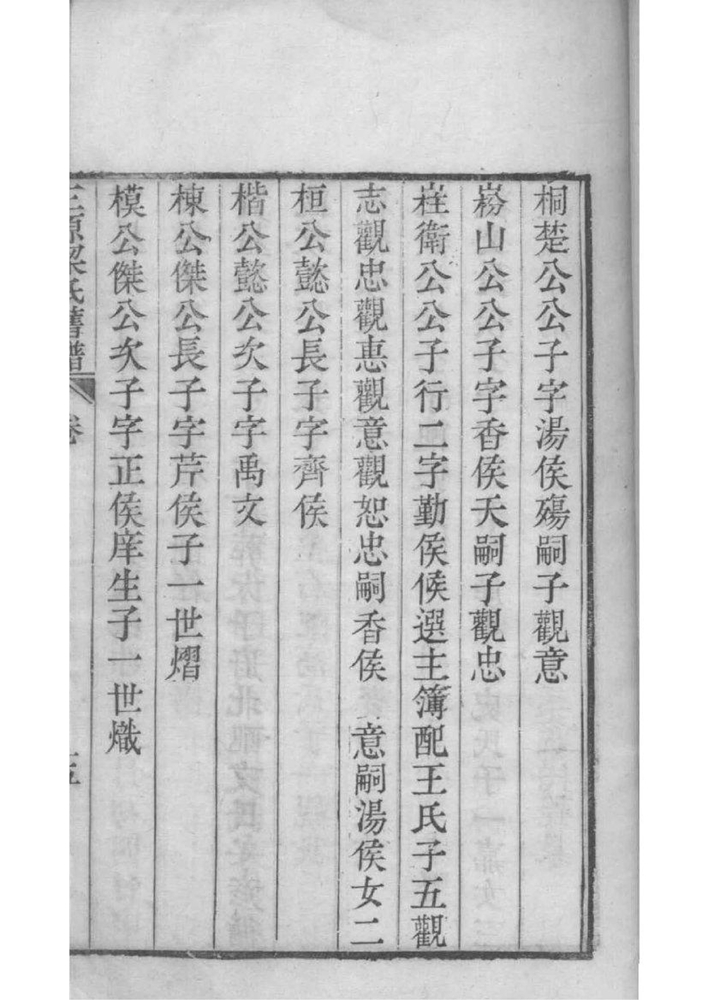 桐楚公公子字湯侯殤嗣子觀意
嵡山公公子字香侯夭嗣子觀忠
嵀衛公公子行二字勤侯候選主簿配王氏子五觀
志觀忠觀恵觀意觀恕忠嗣香侯 意嗣湯侯女二
桓公懿公長子字齊侯
楷公懿公次子字禹文
棟公傑公長子字芹侯子一世熠
模公傑公次子字正侯庠生子一世熾
三原梁氏舊譜 卷 五